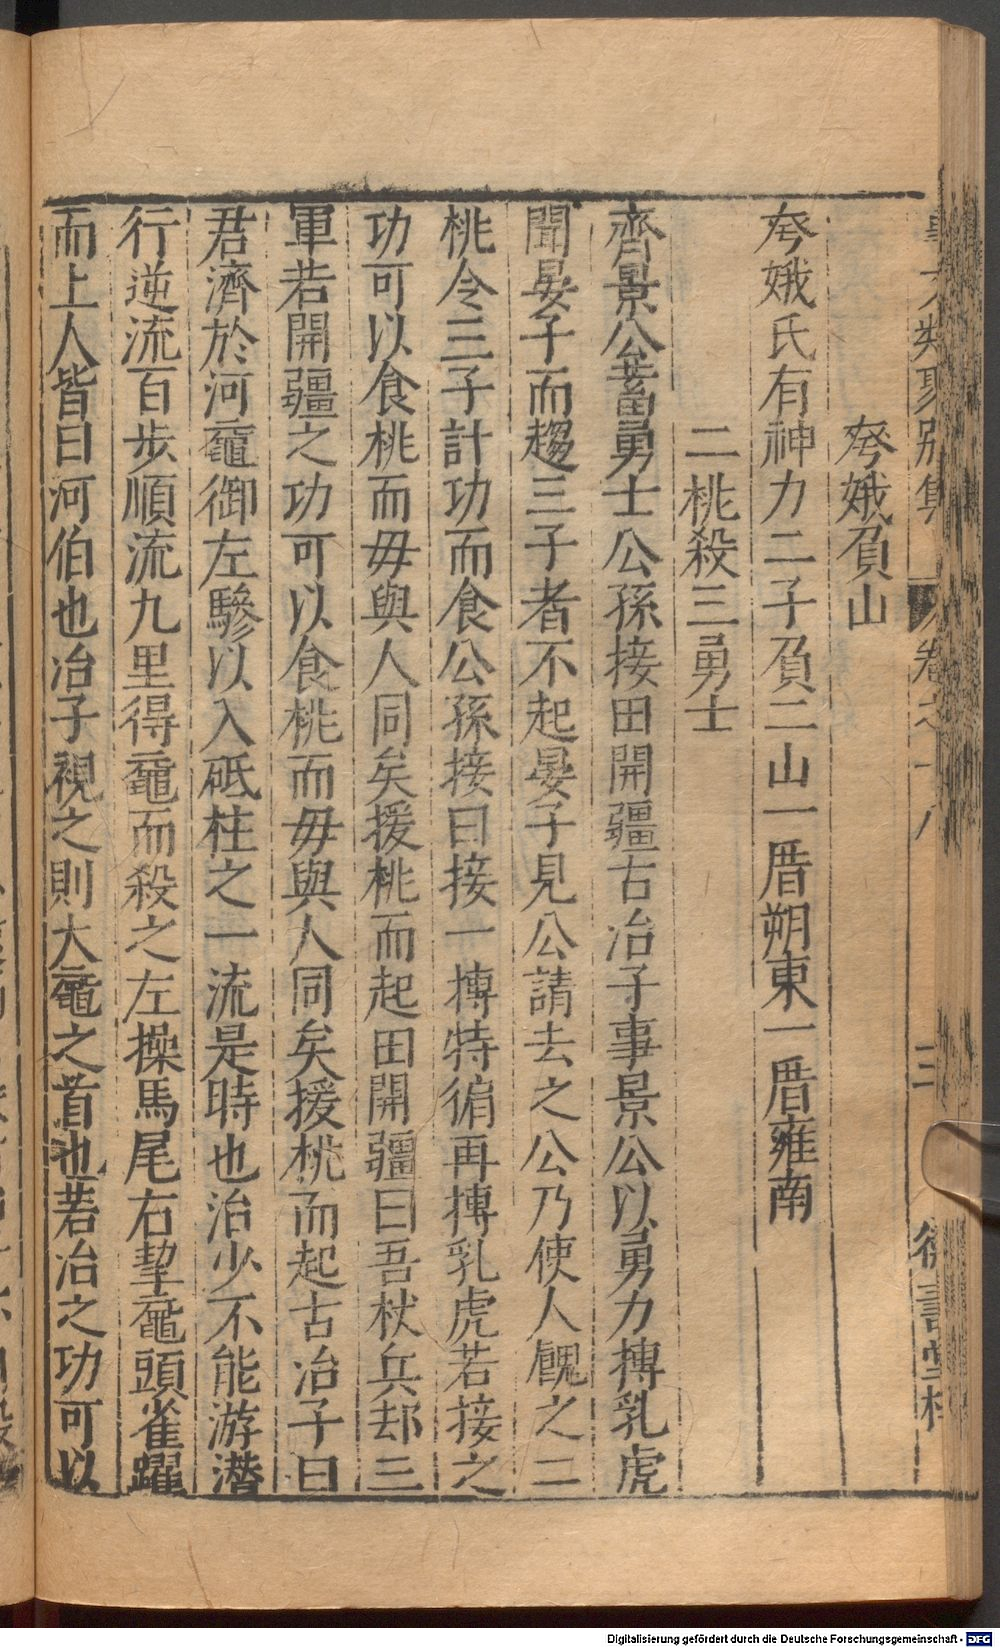 夸娥負山
夸娥氏有神力二子負二山一厝朔東一厝雍南
二桃殺三勇士
齊景公畜勇士公孫接田開疆古冶子事景公以勇力搏乳虎
聞晏子而趨三子者不起晏子見公請去之公乃使人餽之二
桃令三子計功而食公孫接曰接一搏特猏再搏乳虎若接之
功可以食桃而毋與人同矣援桃而起田開疆曰吾杖兵却三
軍若開疆之功可以食桃而毋與人同矣援桃而起古冶子曰
君濟於河黿御左驂以入砥柱之一流是時也治少不能游潛
行逆流百步順流九里得黿而殺之左操馬尾右挈黿頭雀躍
而上人皆曰河伯也冶子視之則大黿之首也若冶之功可以
Digitalisierung gefördert durch die Deutsche Forschungsgemeinschaft - DFG